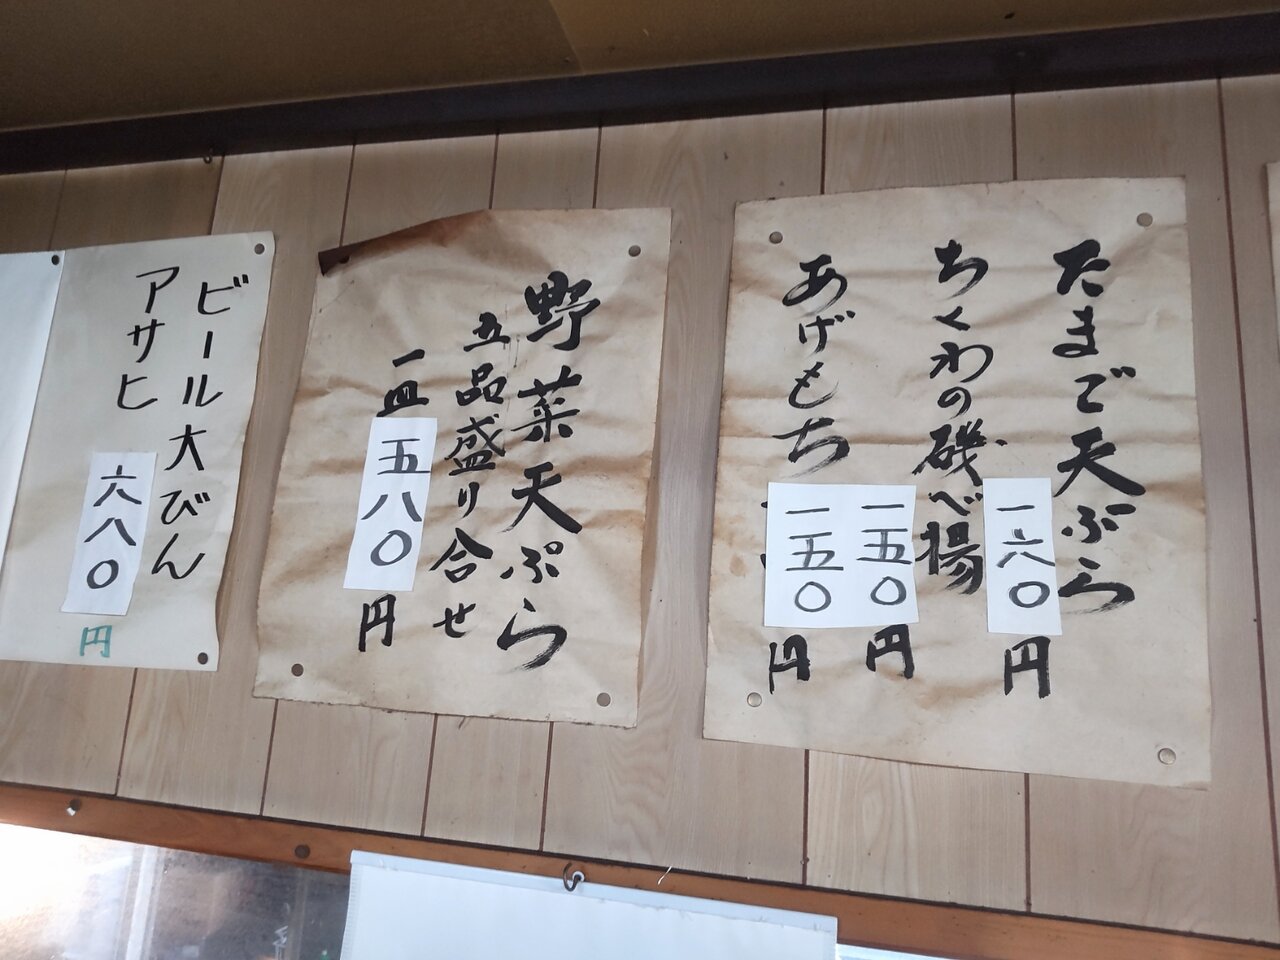 たまご天ぷら
一六〇円
ちくわの磯べ揚
一五〇円
あげもち
一五〇円
野菜天ぷら
五品盛り合せ
一皿 五八〇円
ビール大びん
アサヒ
六八〇円